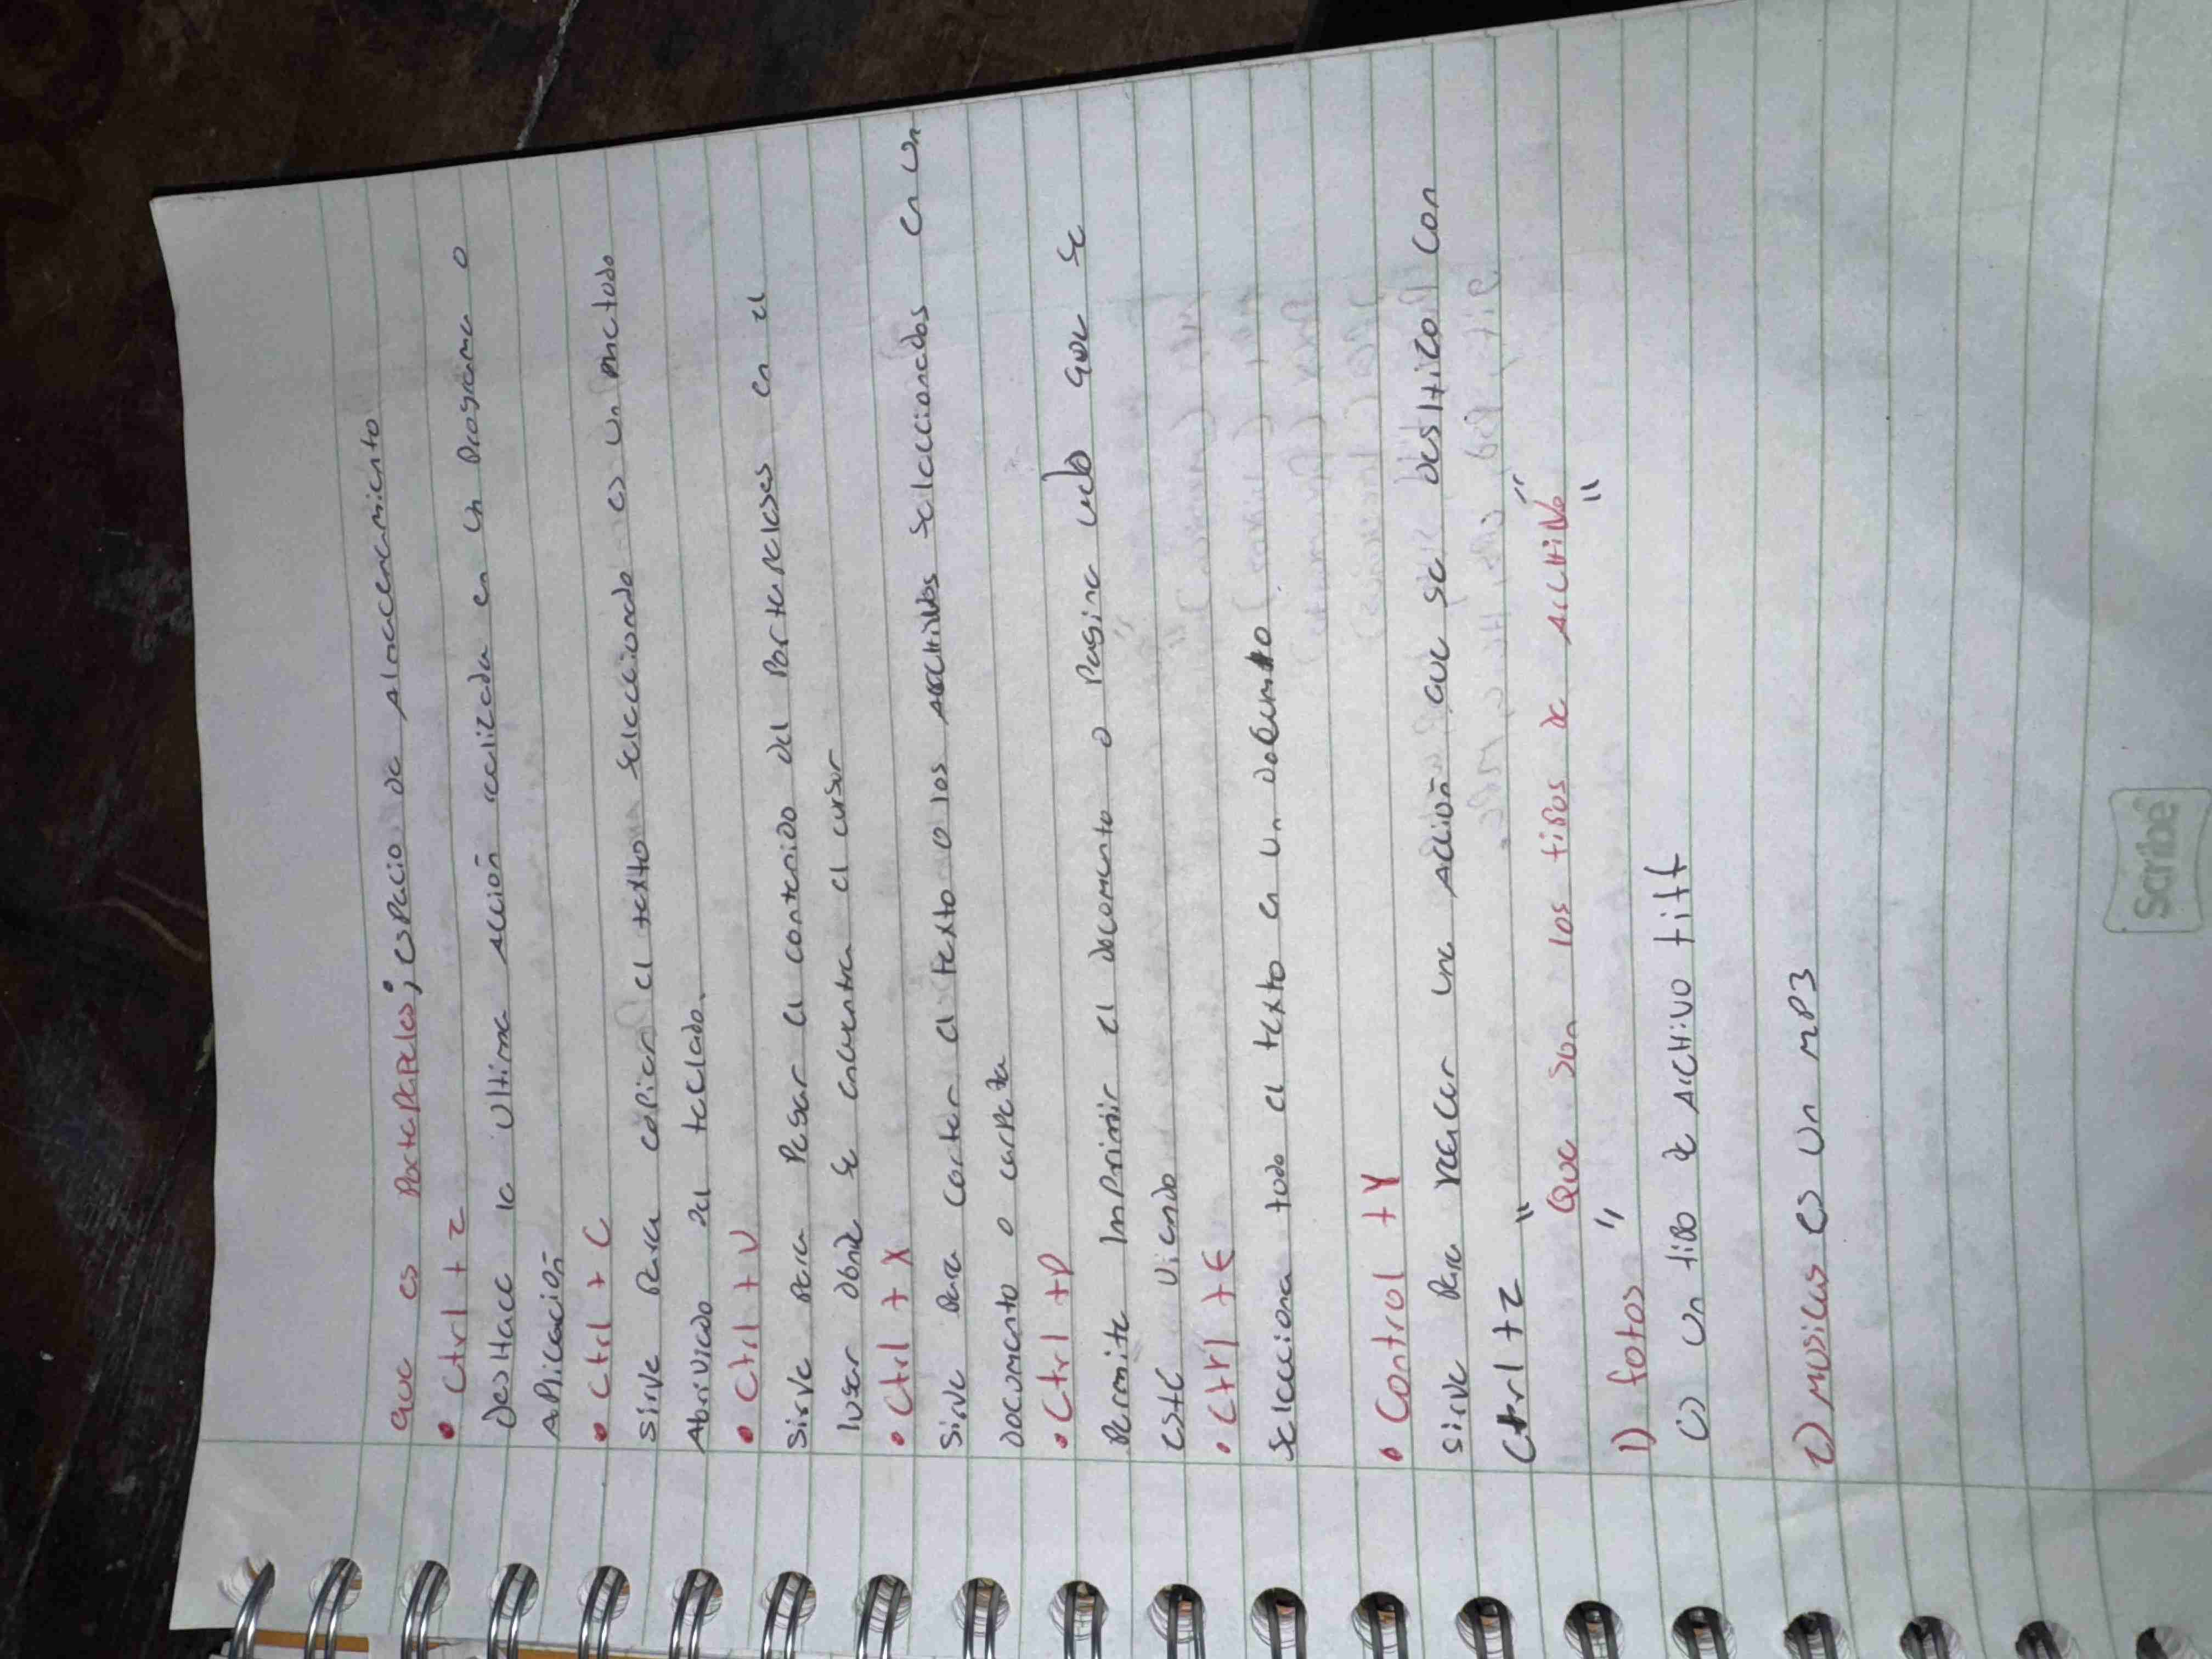 que es PortaPaPeles; esPacio de Almacenamiento
• Ctrl + z
DesHace la Ultima Acción realizada en un Programa o
APlicación
• Ctrl + C
sirve Para coPiar el texto seleccionado es un metodo
Abriviado del teclado.
• Ctrl + V
Sirve Para Pegar el contenido del PortaPeleses en el
lugar donde se encuentra el cursor
• Ctrl + X
Sirve Para Cortar el texto o los ArcHivos seleccionados en un
Documento o carPeta
• Ctrl + P
Permite ImPrimir el documento o Pagina web que se
este Viendo
• Ctrl + E
Selecciona todo el texto en un documto
• Control + Y
Sirve Para reacer una Acción que se desHizo con
Ctrl + z
" Que Son los tiPos de ArcHivo "
1) fotos " "
es un tiPo de ArcHivo tiff
2) musicas es un mP3
Scribe